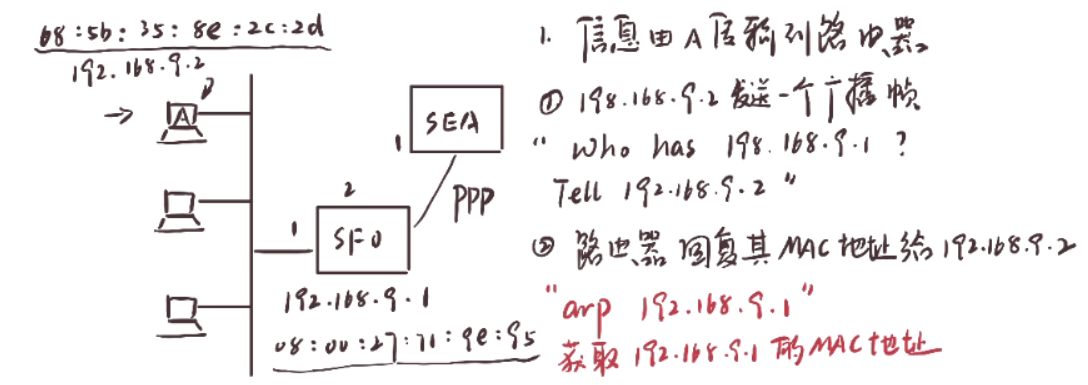 68:5b:35:8e:2c:2d
192.168.9.2
A
1
SEA
PPP
2
1
SFO
192.168.9.1
08:00:27:71:9e:95
1. 信息由A传输到路由器。
① 198.168.9.2 发送一个广播帧
" Who has 198.168.9.1 ?
Tell 192.168.9.2 "
② 路由器 回复其MAC地址给192.168.9.2
"arp 192.168.9.1"
获取 192.168.9.1 的MAC地址